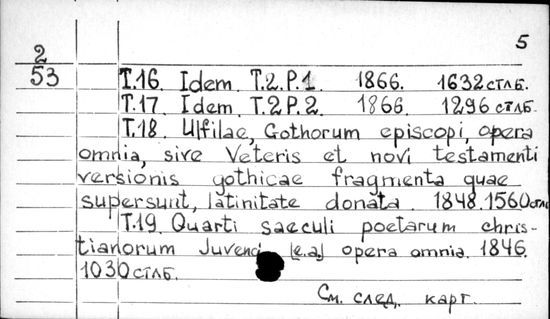 5
2
53
T.16. Idem. T.2.P.1. 1866. 1632 стлб.
T.17. Idem. T.2P.2. 1866. 1296 стлб.
T.18. Ulfilae, Gothorum episcopi, opera
omnia, sive Veteris et novi testamenti
versionis gothicae fragmenta quae
supersunt, latinitate donata. 1848. 1560 стлб
T.19. Quarti saeculi poetarum chris-
tianorum Juvenci [e.a.] opera omnia. 1846.
1030 стлб.
См. след. карт.